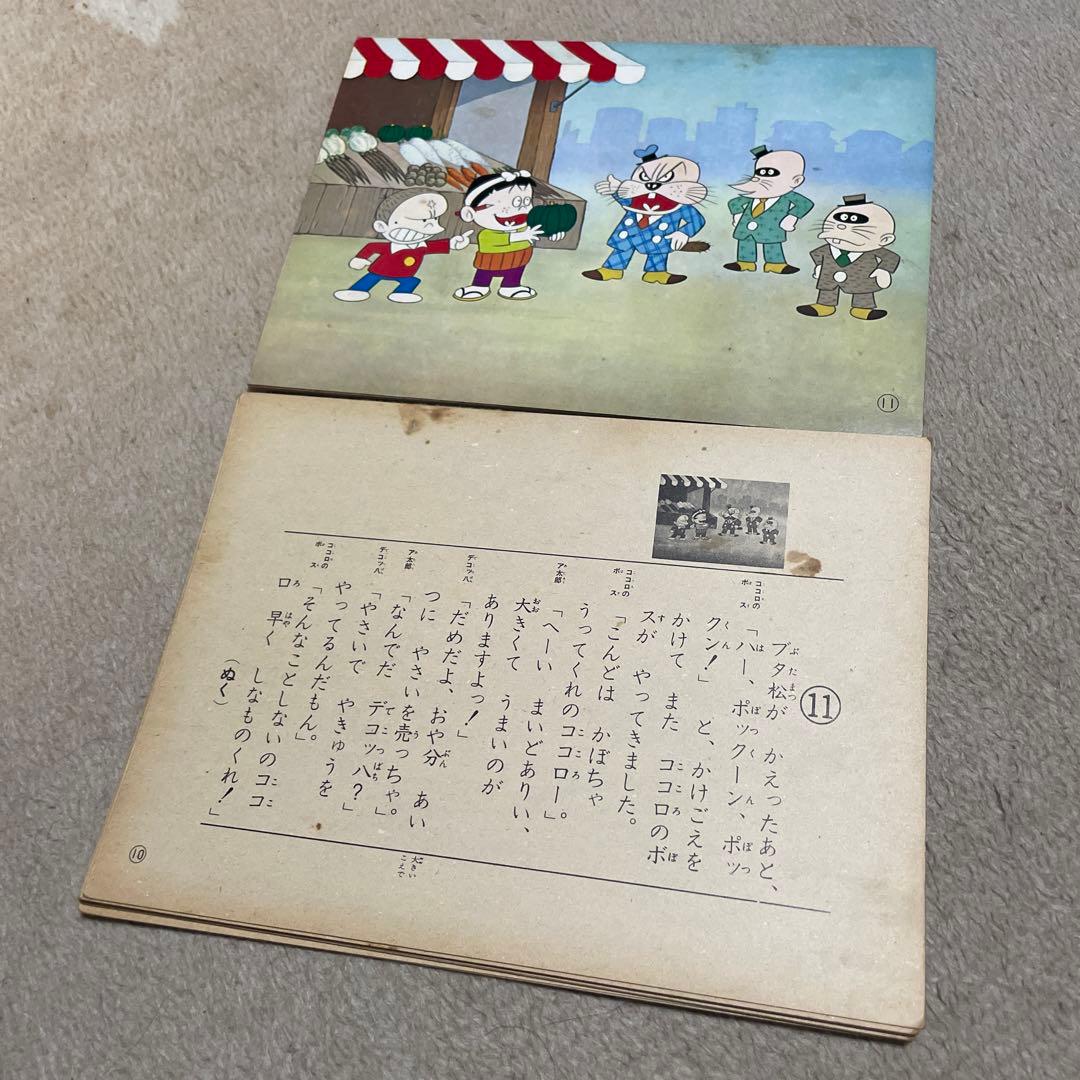 ⑪
⑪
ブタ松が かえったあと、
ココロのボス
「ハー、ポックーン、ポッ
クン!」 と、かけごえを
かけて また ココロのボ
スが やってきました。
ココロのボス
「こんどは かぼちゃ
うってくれのココロー。」
ア太郎
「へーい まいどありい、
大きくて うまいのが
ありますよっ!」
デコッ八
「だめだよ、おや分 あい
つに やさいを売っちゃ。」
ア太郎
「なんでだ デコッ八?」
デコッ八
「やさいで やきゅうを
やってるんだもん。」
ココロのボス
「そんなことしないのココ
ロ 早く しなものくれ!」
(ぬく)
大きいこえで
⑩